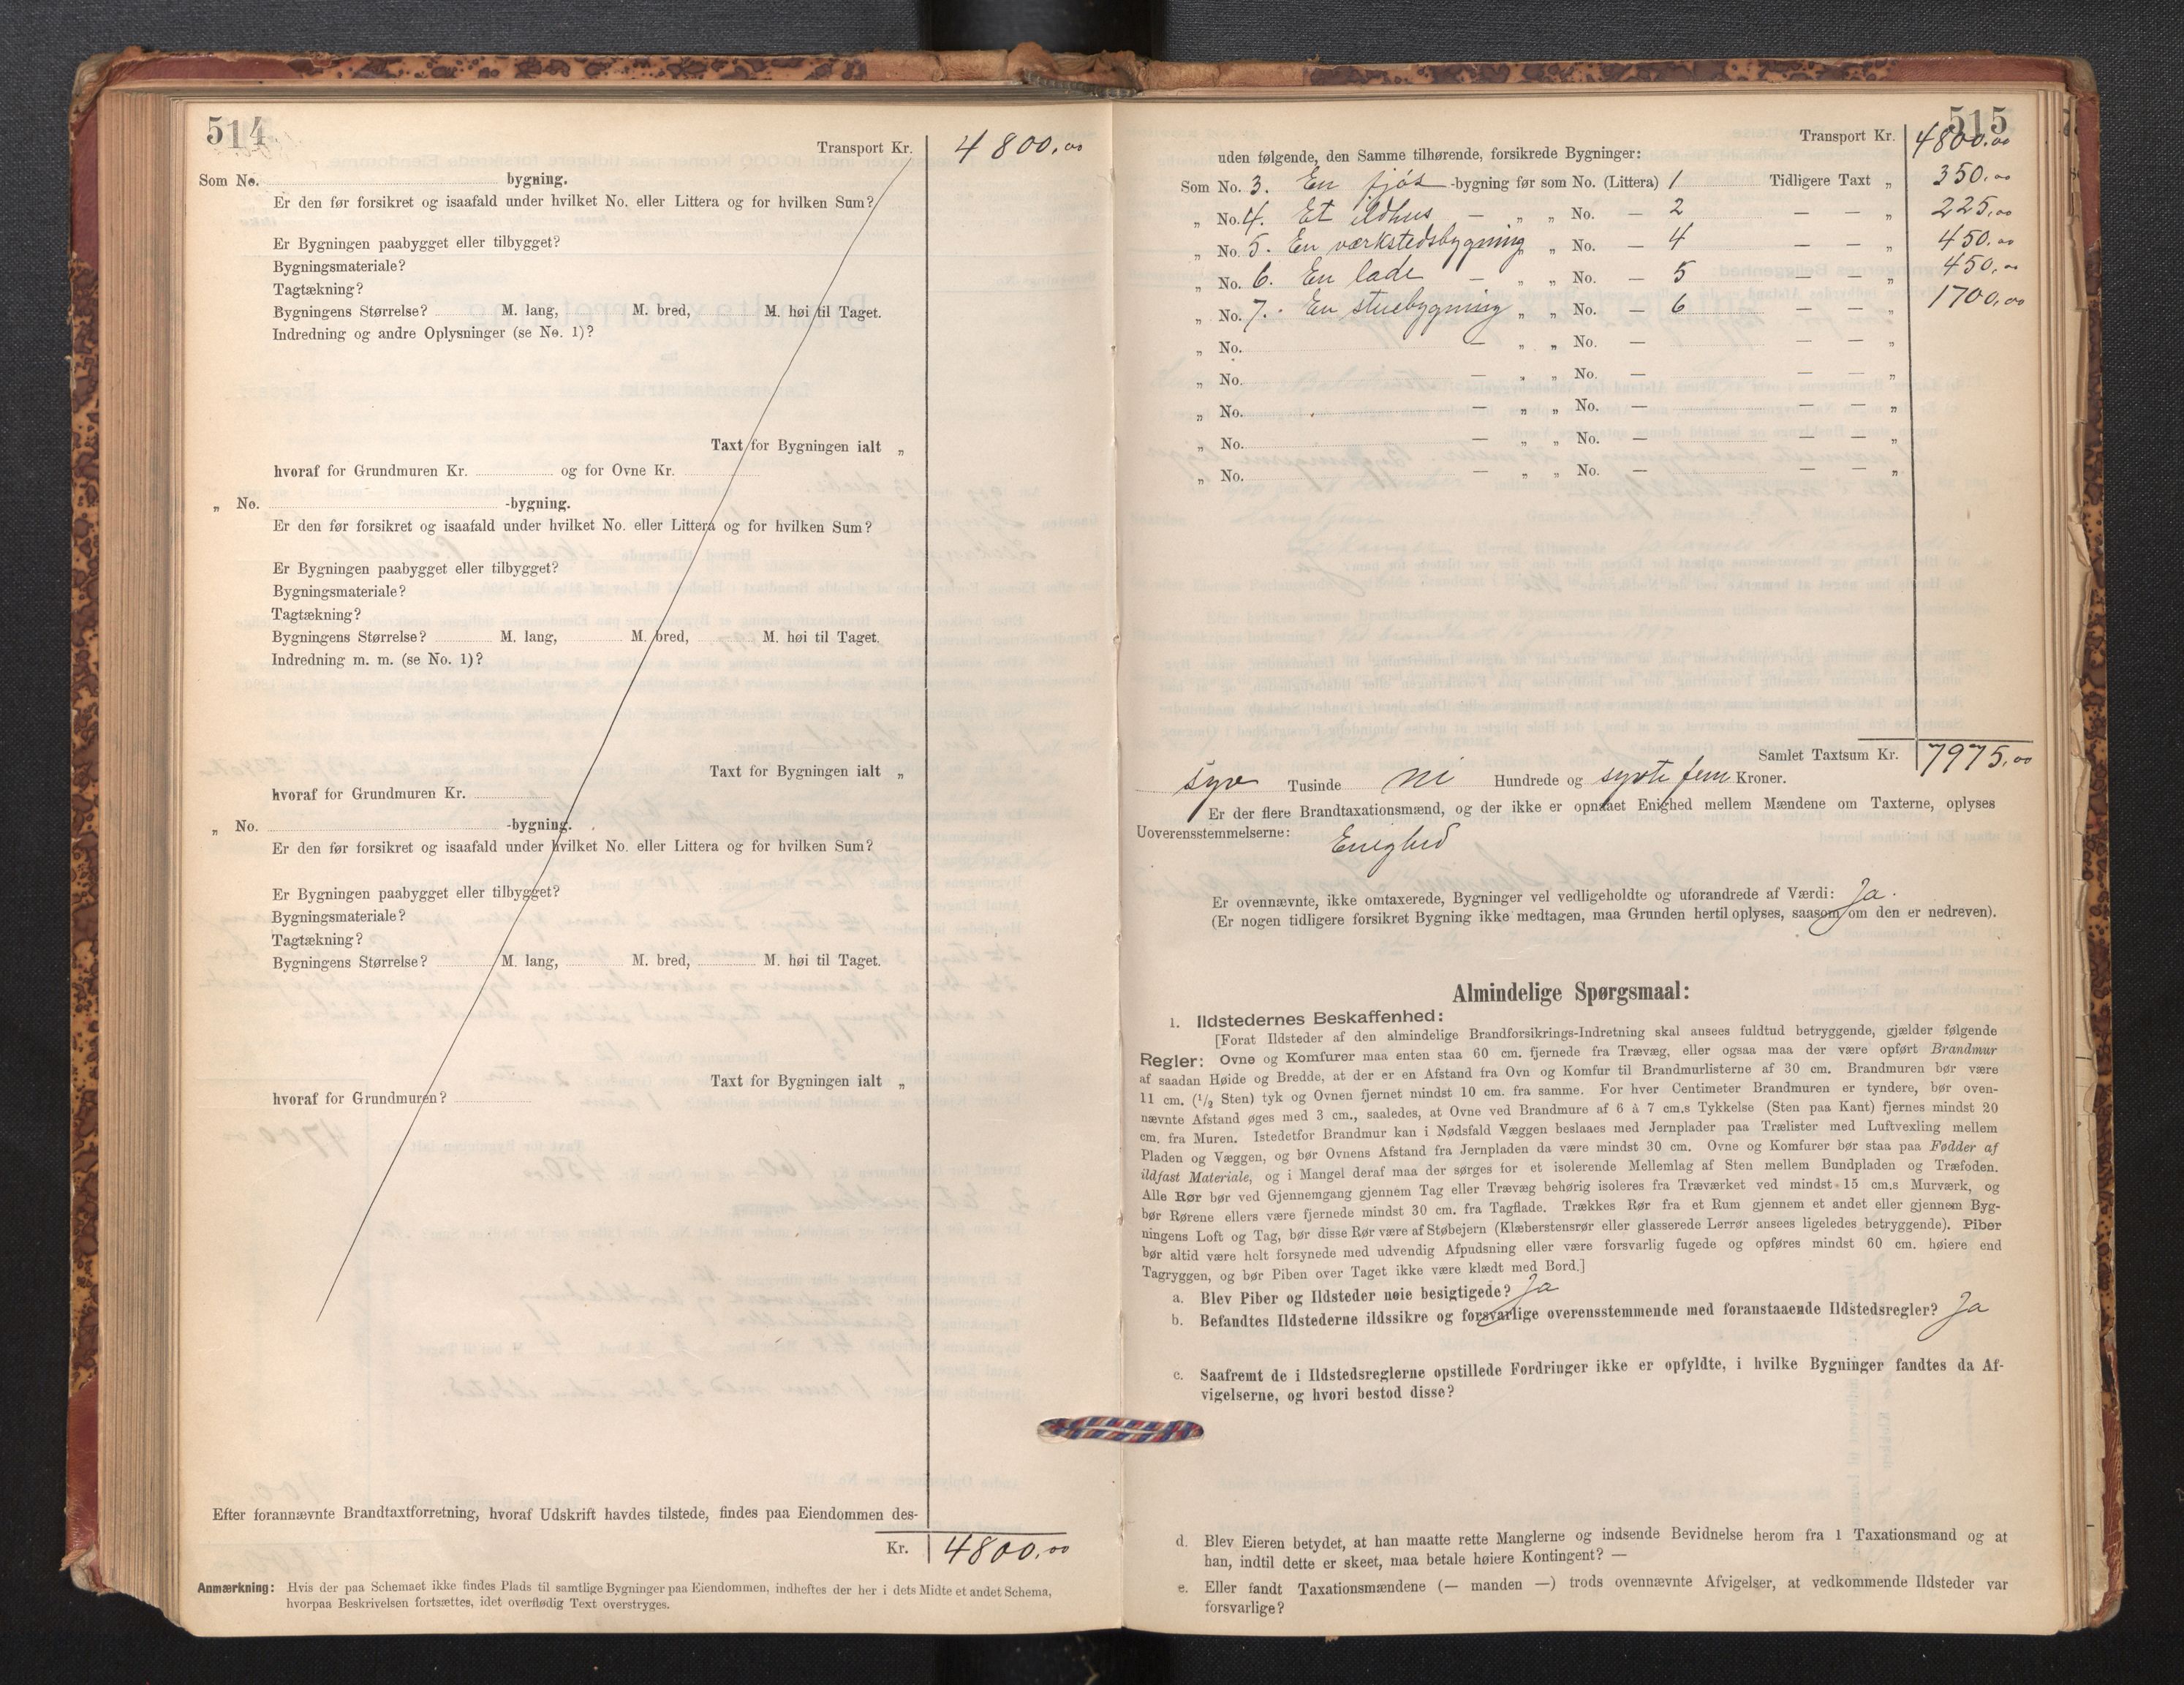 514
Transport Kr. 4800,00
Som No. bygning.
Er den før forsikret og isaafald under hvilket No. eller Littera og for hvilken Sum?
Er Bygningen paabygget eller tilbygget?
Bygningsmateriale?
Tagtækning?
Bygningens Størrelse? M. lang, M. bred, M. høi til Taget.
Indredning og andre Oplysninger (se No. 1)?
Taxt for Bygningen ialt „
hvoraf for Grundmuren Kr. og for Ovne Kr.
„ No. -bygning.
Er den før forsikret og isaafald under hvilket No. eller Littera og for hvilken Sum?
Er Bygningen paabygget eller tilbygget?
Bygningsmateriale?
Tagtækning?
Bygningens Størrelse? M. lang, M. bred, M. høi til Taget.
Indredning m. m. (se No. 1)?
Taxt for Bygningen ialt „
hvoraf for Grundmuren Kr.
„ No. -bygning.
Er den før forsikret og isaafald under hvilket No. eller Littera og for hvilken Sum?
Er Bygningen paabygget eller tilbygget?
Bygningsmateriale?
Tagtækning?
Bygningens Størrelse? M. lang, M. bred, M. høi til Taget.
Taxt for Bygningen ialt „
hvoraf for Grundmuren?
Efter forannævnte Brandtaxtforretning, hvoraf Udskrift havdes tilstede, findes paa Eiendommen des-
Kr. 4800,00
Anmærkning: Hvis der paa Schemaet ikke findes Plads til samtlige Bygninger paa Eiendommen, indheftes der her i dets Midte et andet Schema,
hvorpaa Beskrivelsen fortsættes, idet overflødig Text overstryges.
515
Transport Kr. 4800,00
uden følgende, den Samme tilhørende, forsikrede Bygninger:
Som No. 3. En fjøs -bygning før som No. (Littera) 1 Tidligere Taxt „ 350,00
„ No. 4. Et ildhus — „ „ No. — 2 — — „ 225,00
„ No. 5. En værkstedsbygning „ No. — 4 — — „ 450,00
„ No. 6. En lade — „ „ No. — 5 — — „ 450,00
„ No. 7. En stuebygning „ „ No. — 6 — — „ 1700,00
„ No. — „ „ No. — — — „
„ No. — „ „ No. — — — „
„ No. — „ „ No. — — — „
„ No. — „ „ No. — — — „
„ No. — „ „ No. — — — „
Samlet Taxtsum Kr. 7975,00
syv Tusinde ni Hundrede og sytti fem Kroner.
Er der flere Brandtaxationsmænd, og der ikke er opnaaet Enighed mellem Mændene om Taxterne, oplyses
Uoverensstemmelserne: Enighed
Er ovennævnte, ikke omtaxerede, Bygninger vel vedligeholdte og uforandrede af Værdi: Ja.
(Er nogen tidligere forsikret Bygning ikke medtagen, maa Grunden hertil oplyses, saasom om den er nedreven).
Almindelige Spørgsmaal:
1. Ildstedernes Beskaffenhed:
[Forat Ildsteder af den almindelige Brandforsikrings-Indretning skal ansees fuldtud betryggende, gjælder følgende
Regler: Ovne og Komfurer maa enten staa 60 cm. fjernede fra Trævæg, eller ogsaa maa der være opført Brandmur
af saadan Høide og Bredde, at der er en Afstand fra Ovn og Komfur til Brandmurlisterne af 30 cm. Brandmuren bør være
11 cm. (1/2 Sten) tyk og Ovnen fjernet mindst 10 cm. fra samme. For hver Centimeter Brandmuren er tyndere, bør oven-
nævnte Afstand øges med 3 cm., saaledes, at Ovne ved Brandmure af 6 à 7 cm.s Tykkelse (Sten paa Kant) fjernes mindst 20
cm. fra Muren. Istedetfor Brandmur kan i Nødsfald Væggen beslaaes med Jernplader paa Trælister med Luftvexling mellem
Pladen og Væggen, og bør Ovnens Afstand fra Jernpladen da være mindst 30 cm. Ovne og Komfurer bør staa paa Fødder af
ildfast Materiale, og i Mangel deraf maa der sørges for et isolerende Mellemlag af Sten mellem Bundpladen og Træfoden.
Alle Rør bør ved Gjennemgang gjennem Tag eller Trævæg behørig isoleres fra Træværket ved mindst 15 cm.s Murværk, og
bør Rørene ellers være fjernede mindst 30 cm. fra Tagflade. Trækkes Rør fra et Rum gjennem et andet eller gjennem Byg-
ningens Loft og Tag, bør disse Rør være af Støbejern (Klæberstensrør eller glasserede Lerrør ansees ligeledes betryggende). Piber
bør altid være helt forsynede med udvendig Afpudsning eller være forsvarlig fugede og opføres mindst 60 cm. høiere end
Tagryggen, og bør Piben over Taget ikke være klædt med Bord.]
a. Blev Piber og Ildsteder nøie besigtigede? Ja
b. Befandtes Ildstederne ildssikre og forsvarlige overensstemmende med foranstaaende Ildstedsregler? Ja
c. Saafremt de i Ildstedsreglerne opstillede Fordringer ikke er opfyldte, i hvilke Bygninger fandtes da Af-
vigelserne, og hvori bestod disse?
d. Blev Eieren betydet, at han maatte rette Manglerne og indsende Bevidnelse herom fra 1 Taxationsmand og at
han, indtil dette er skeet, maa betale høiere Kontingent? —
e. Eller fandt Taxationsmændene (— manden —) trods ovennævnte Afvigelser, at vedkommende Ildsteder var
forsvarlige?